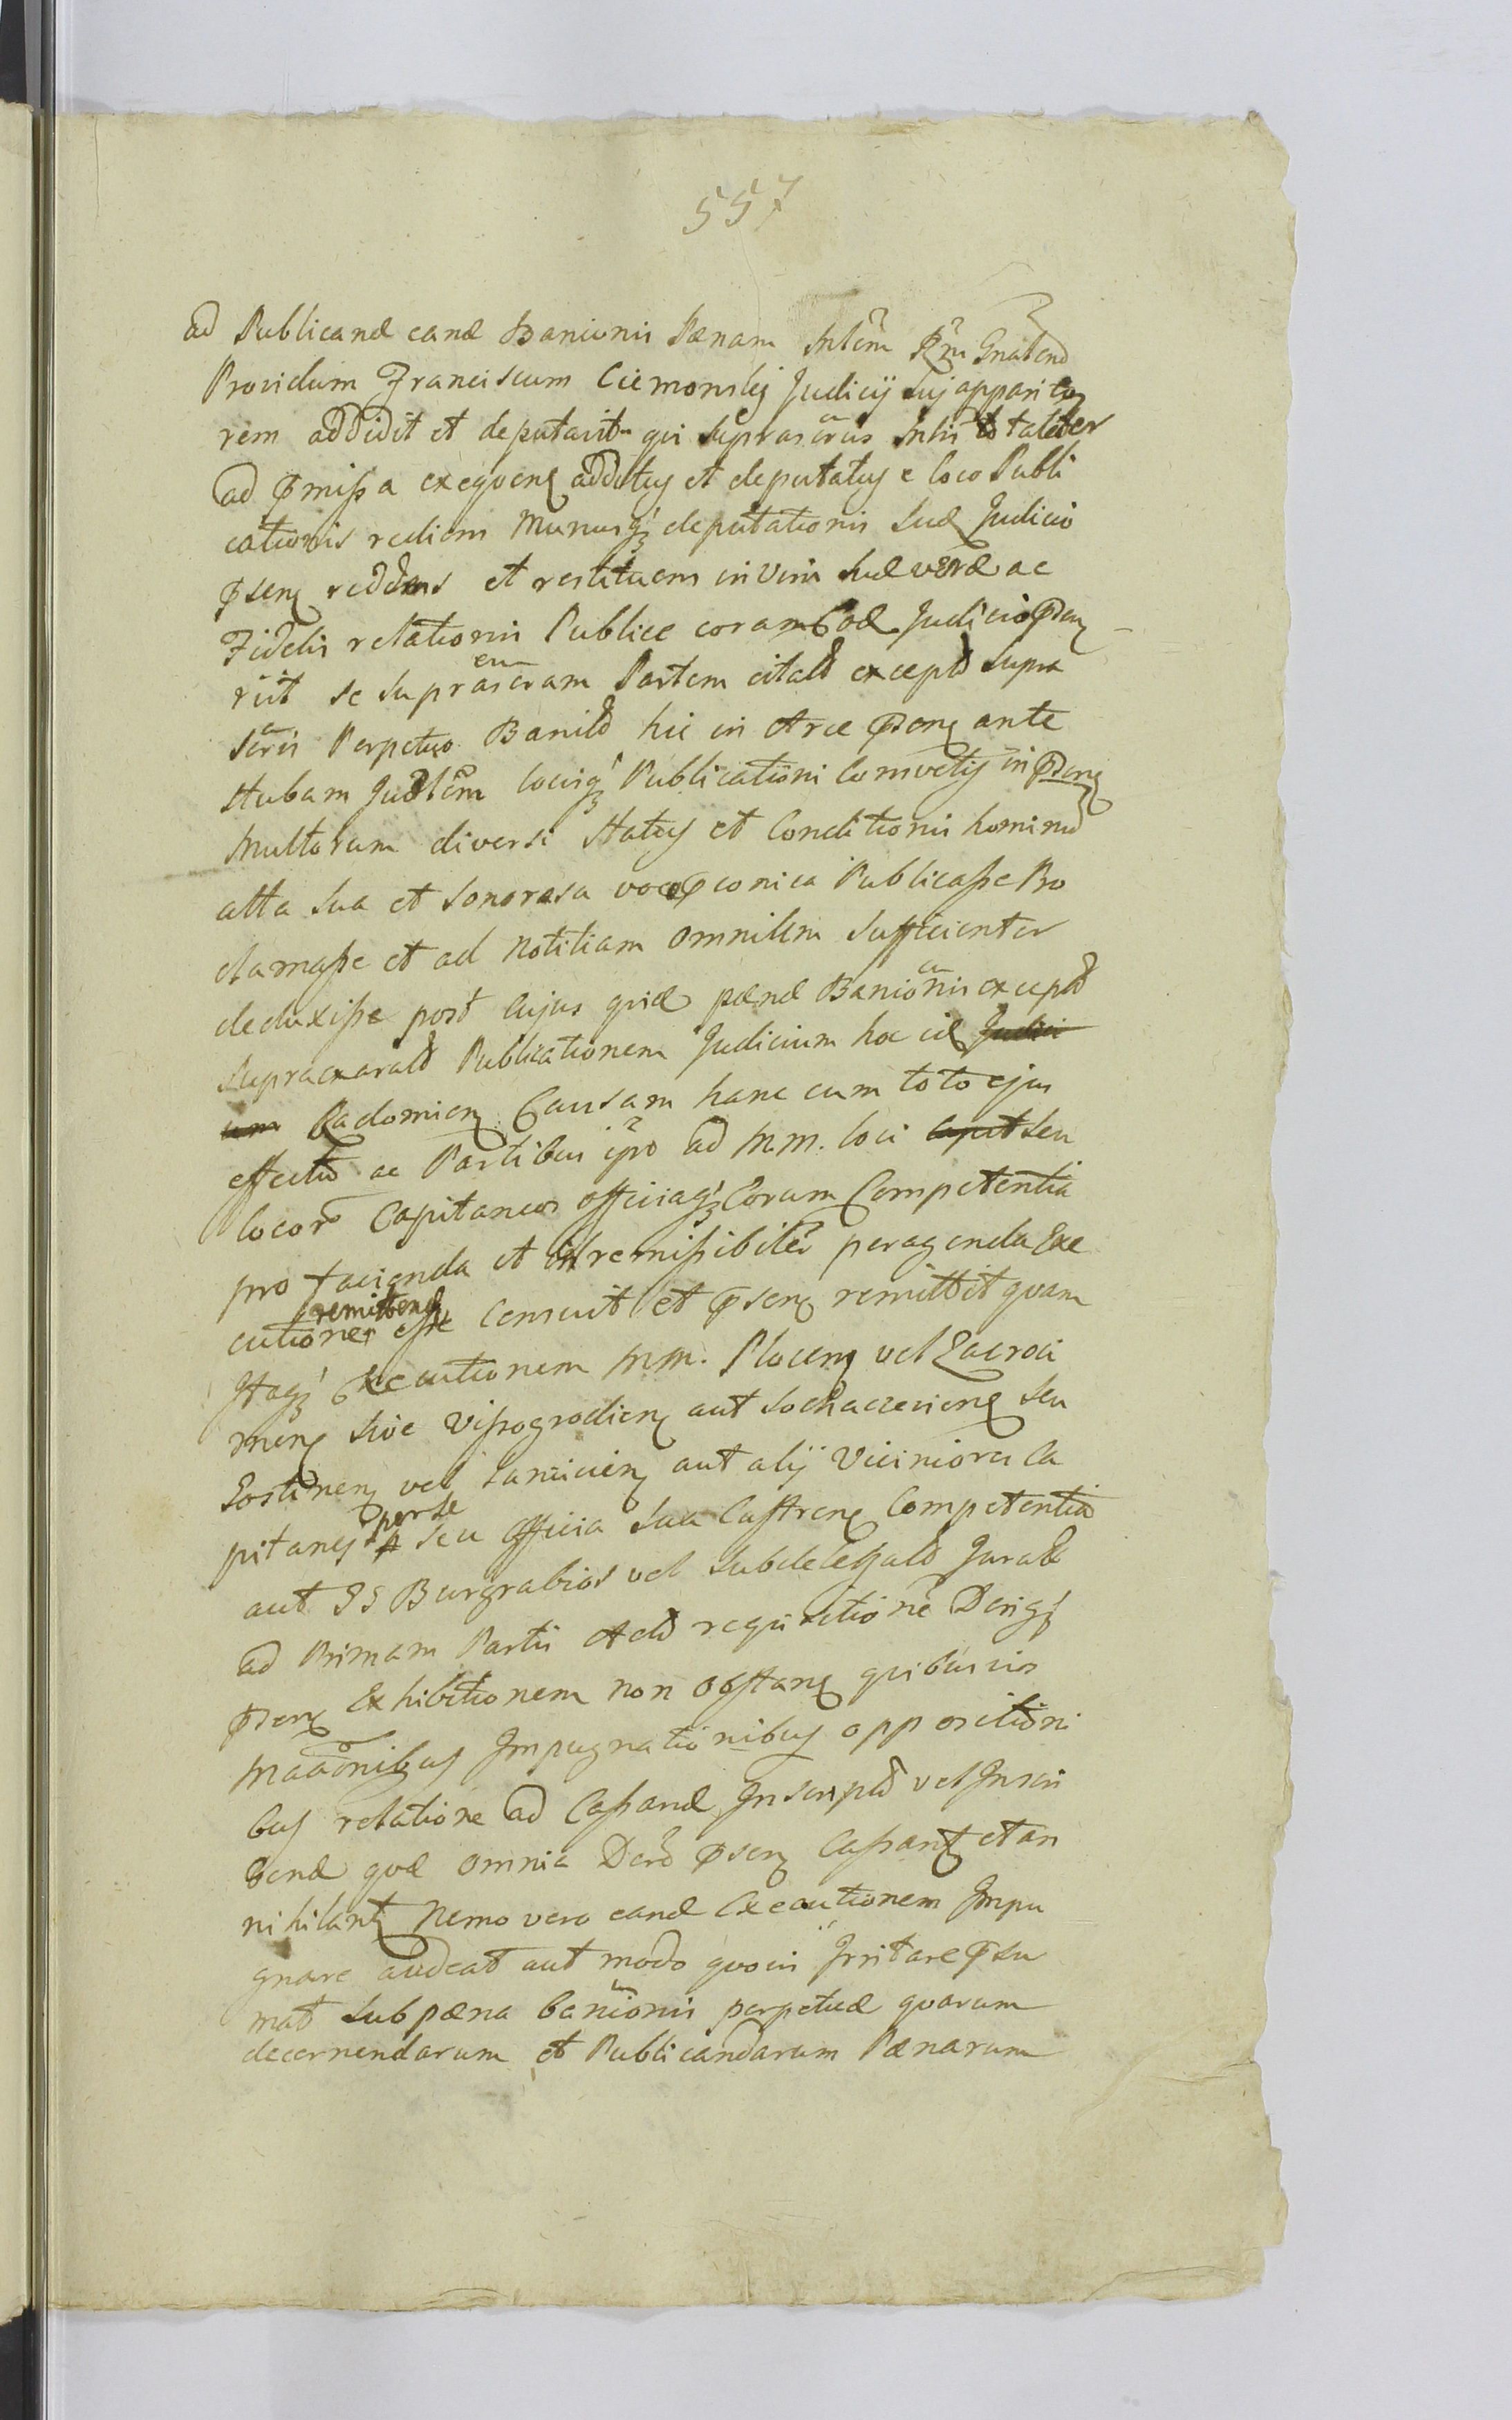 557
ad Publicand eand Banionis Pænam Mlem Rm Gnalem
Providum Franciscum Ciemonski Judicij sui apparito
rem addidit et deputavit qui suprascrus Mlis totaliter
ad pmissa exequen additus et deputatus e loco Publi
cationis rediens Munusq deputationis suæ Judicio
psen reddens et restituens in vim suæ veræ ac
Fidelis relationis Publice coram eod Judicio psen
rit se suprascram Partem citatam excepta supra
scris Perpetuo Banitam hic in Arce psen ante
stubam Judlem locisq Publicationi consvetis in psen
multorum diversi status et Conditionis hominu
alta sua et sonorosa voce pconica Publicasse Pro
clamasse et ad notitiam omnium sufficienter
deduxisse post cujus quid pænæ Banionis except
supraexarat Publicationem Judicium hoc cil Judici
um Radomien Causam hanc cum toto ejus
effectu ac Partibus ipso ad M.M. loci caput seu
locor Capitaneos officiaq eorum Competentia
pro facienda et irremissibiler peragenda Exe
cutione remitten esse censuit et psen remittit quam
Itaq Executionem MM. Plocen vel Zacroci
men sive Vissogrodien aut Sochaczevien seu
Gostinen vel Ravien aut alij Viciniores Ca
pitanei per se seu officia sua Castren Competentia
aut GG Burgrabios vel subdelegatos Jurat
ad Primam Partis Actoreæ requisitione Derisq
psen Exhibitionem non obstan quibusvis
Maonibus Impugnationibus oppositioni
bus relatione ad Cassand Inscript vel Inscri
bend quæ omnia Dero psen Cassant et an
nihilant Nemo vero eand Executionem Impu
gnare audeat aut modo quovis Irritare psu
mat sub pæna banionis perpetuæ quarum
decernendarum et Publicandarum Pænarum